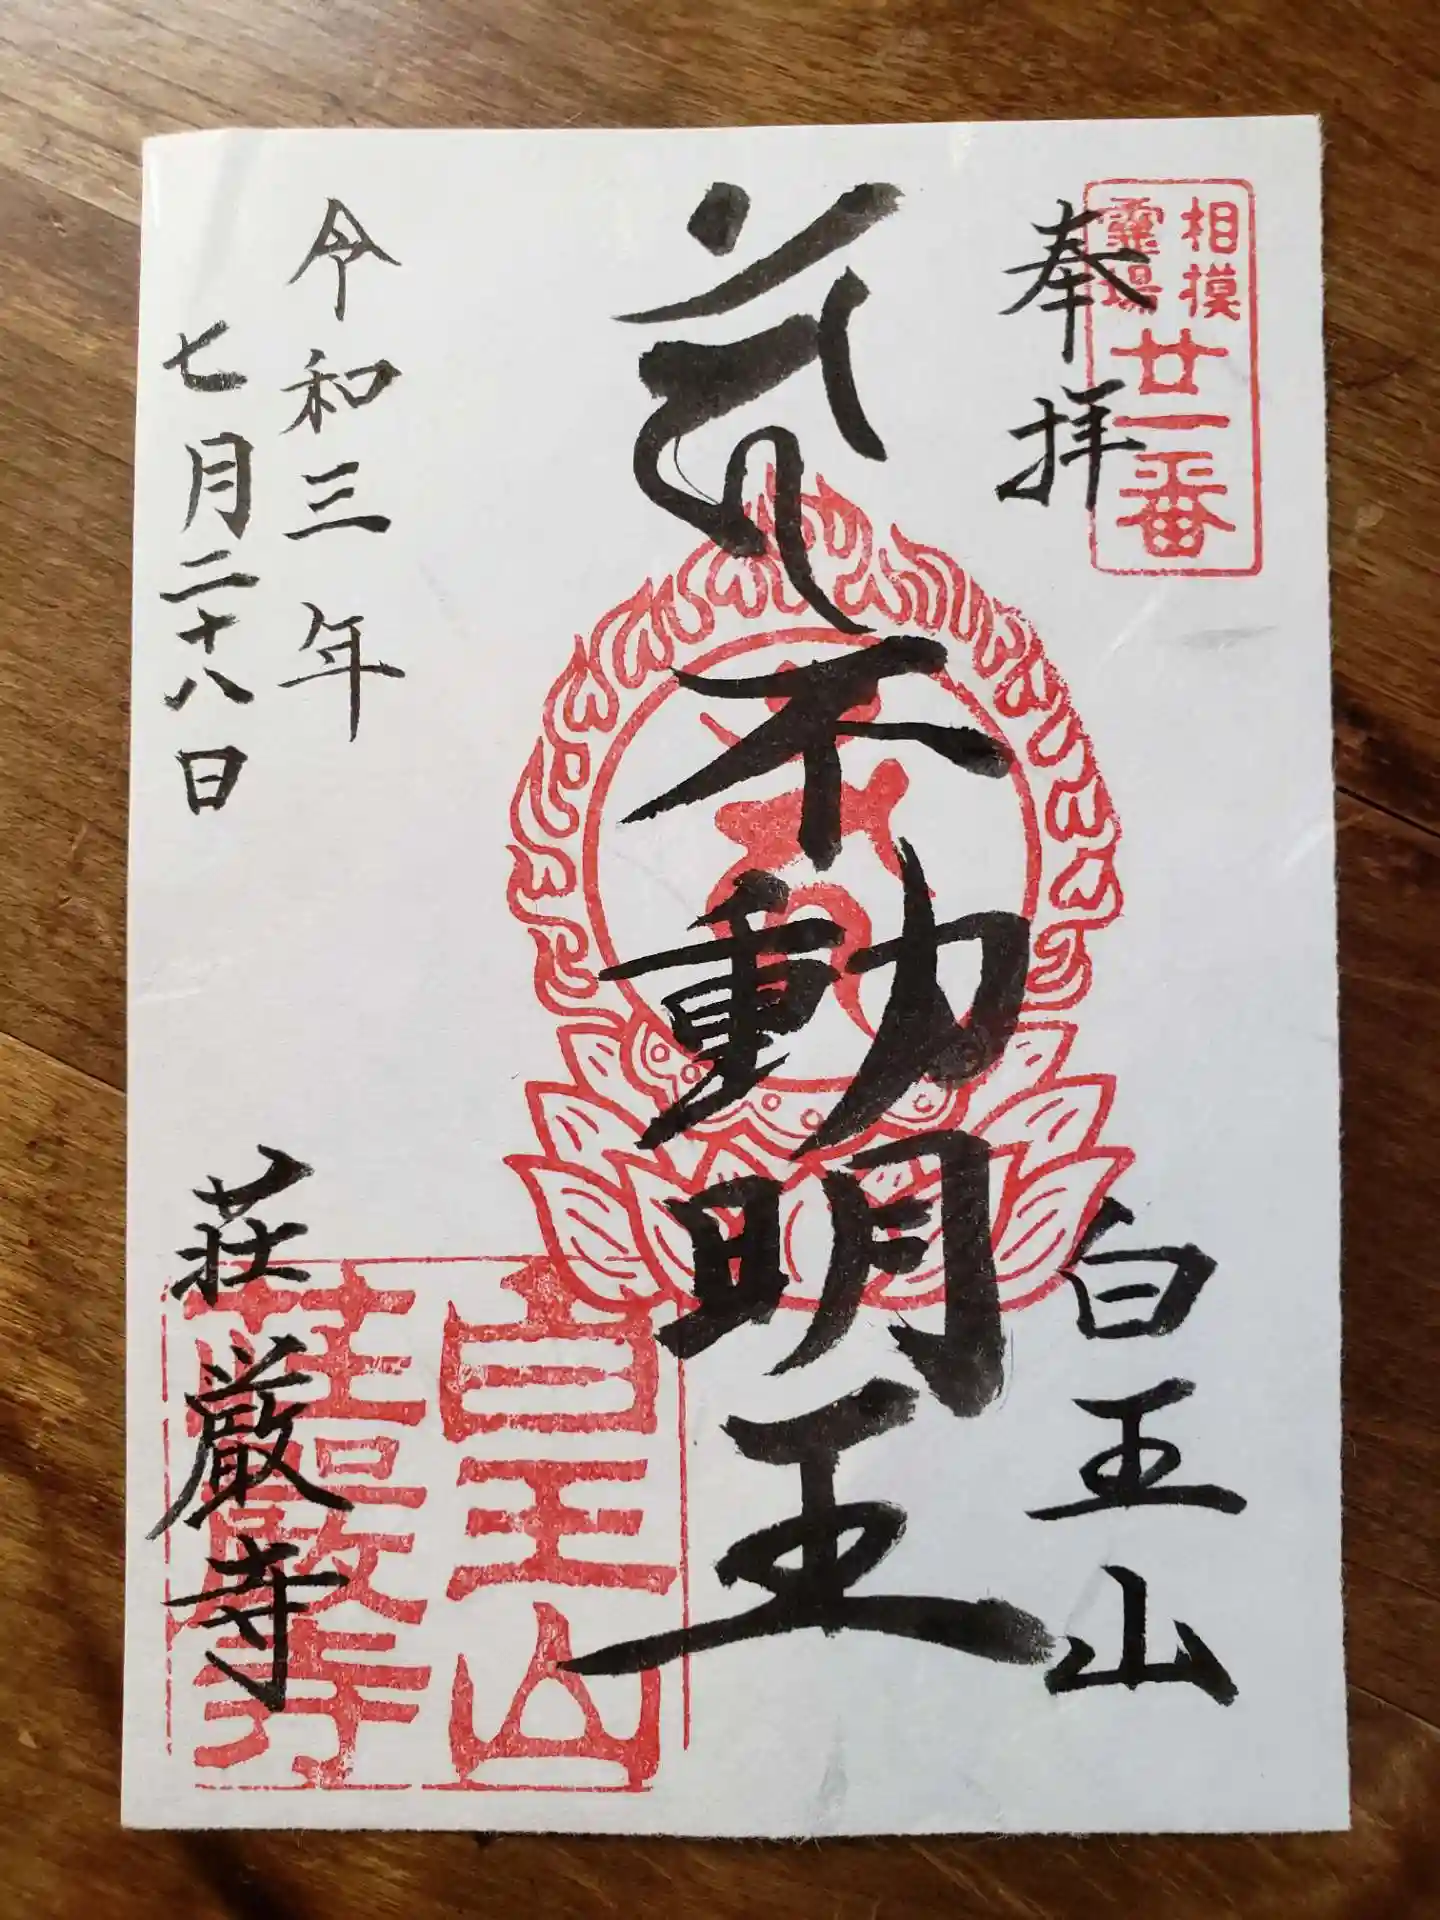 相模
霊場
廿一番
奉拝
白王山
不動明王
令和三年
七月二十八日
荘厳寺
白王山
荘嚴寺